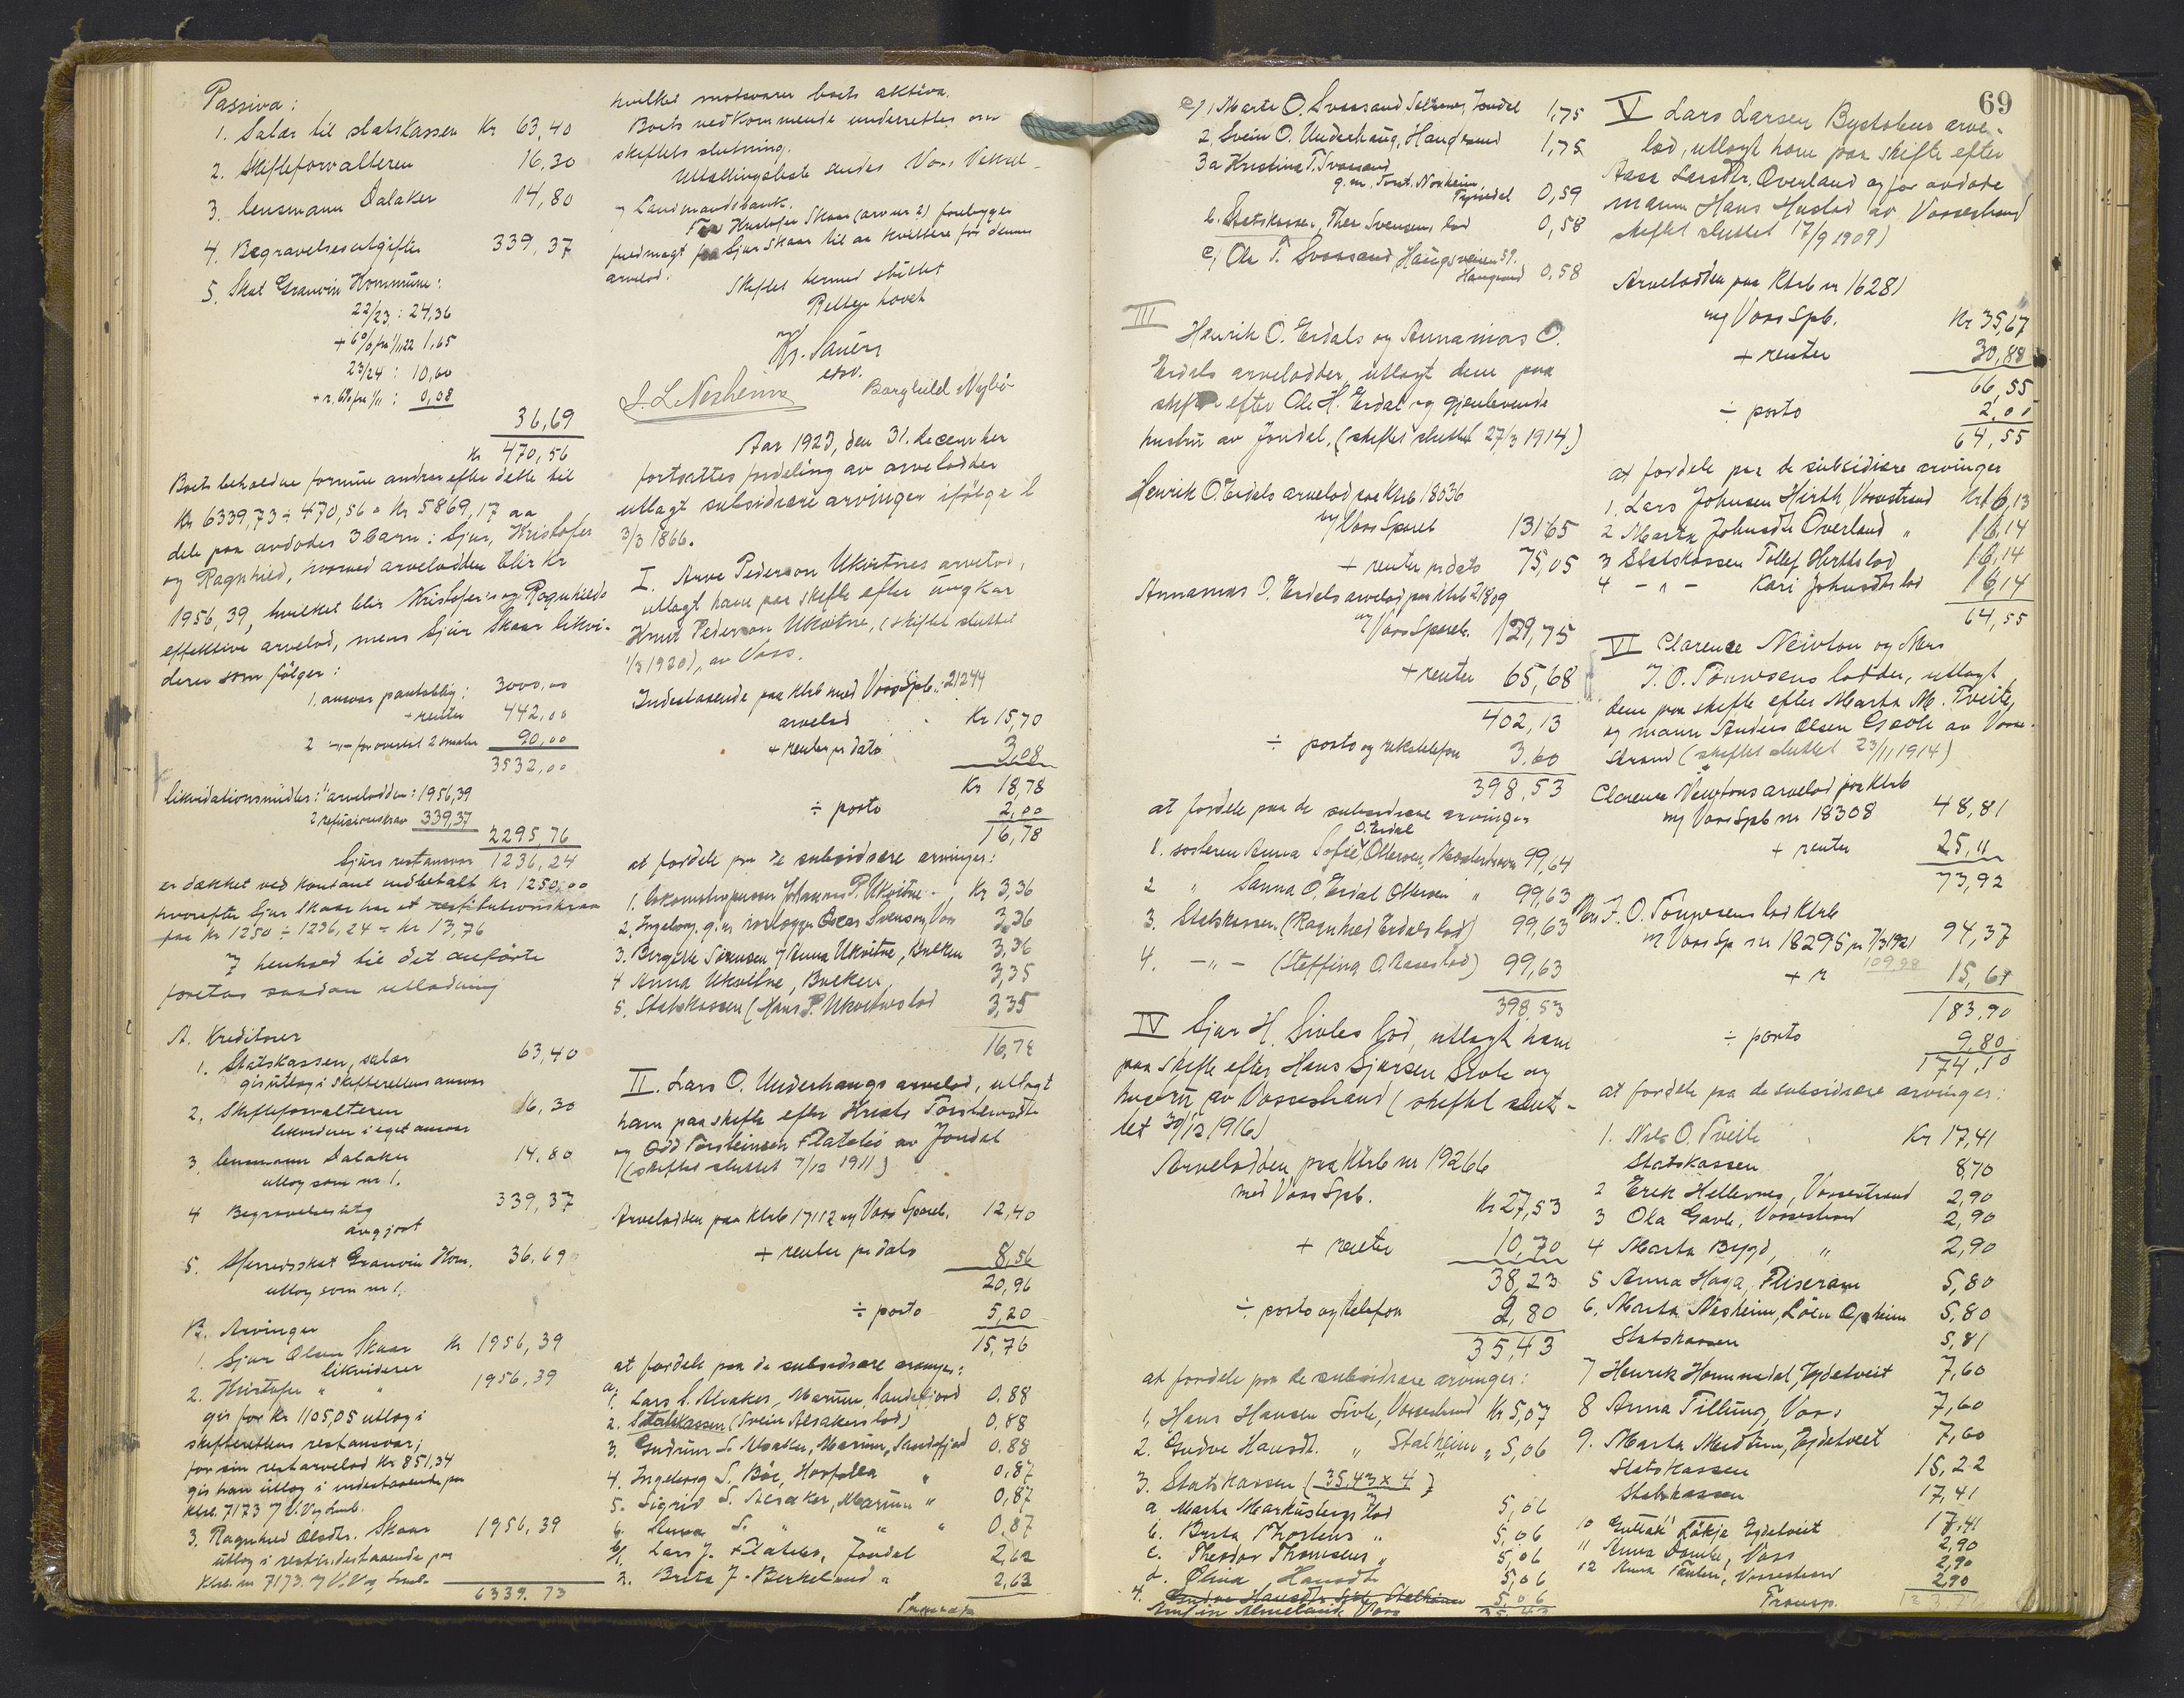 Passiva:
1. Salær til statskassen Kr 63,40
2. Skifteforvalteren 16,30
3. lensmann Dalaker 14,80
4. Begravelsesutgifter 339,37
5. Skat Granvin Kommune:
22/23: 24,36
+ 6% fra 1/1 22 1,65
23/24: 10,60
+ r. 6% fra 1/11: 0,08
36,69
Kr 470,56
Boets beholdne formue andrar efter dette til
Kr 6339,73 ÷ 470,56 = Kr 5869,17 aa
dele paa avdödes 3 barn: Sjur, Kristofer
og Ragnhild, hvorved arvelodden blir Kr
1956,39, hvilket blir Kristofer's og Ragnhilds
effektive arvelod, mens Sjur Skaar likvi-
derer som fölger:
1. ansvar pantoblig: 3000,00
+ renter 442,00
2 -"- for overtat 2 smaler 90,00
3532,00
likvidationsmidler: 1 arvelodden: 1956,39
2 refusionskrav 339,37
2295,76
Sjurs restansvar 1236,24
er dækket ved kontant indbetalt Kr 1250,00
hvorefter Sjur Skaar har et restitutionskrav
paa Kr 1250 ÷ 1236,24 = Kr 13,76
I henhold til det anförte
foretas saadan utlodning
A. Kreditorer
1. Statskassen, salær 63,40
gis utlæg i skifterettens ansvar
2. Skifteforvalteren 16,30
likviderer i eget ansvar
3. lensmann Dalaker 14,80
utlæg som nr 1.
4 Begravelsesutg 339,37
avgjort
5. Herredsskat Granvin Kom. 36,69
utlæg som nr 1.
B. Arvinger
1. Sjur Olsen Skaar Kr 1956,39
likviderer
2. Kristofer " " 1956,39
gis for Kr 1105,05 utlæg i
skifterettens restansvar;
for sin restarvelod Kr 851,34
gis han utlæg i indestaaende paa
Ktrb. 7173 i V. V og Lmb.
3. Ragnhild Olsdtr. Skaar 1956,39
utlæg i restindestaaende paa
Ktrb. nr 7173 i V. V og Lmb.
6339.73
hvilket motsvarer boets aktiva.
Boets vedkommende underrettes om
skiftets slutning.
Utbetalingsliste sendes Voss Veksel-
og Landmandsbank.
Fra Kristofer Skaar (arv nr 2) forelegges
fuldmagt for Sjur Skaar til aa kvittere for denne
arvelod.
Skiftet hermed sluttet
Retten hævet
Kr. Sauen
cst.
J. L. Nesheim Borghild Nybö
Aar 1923, den 31. december
fortsættes fordeling av arvelodder
utlagt subsidiære arvinger ifölge l
3/3 1866.
I. Arve Pederson Ukvitnes arvelod,
utlagt ham paa skifte efter ungkar
Knut Pederson Ukvitne, (skiftet sluttet
1/3 1920), av Voss.
Indestaaende paa Ktrb med Voss Spb.: 21244
arvelod Kr 15,70
+ renter pr dato 3,08
Kr 18,78
÷ porto 2,00
16,78
at fordele paa de subsidiære arvinger:
1. Johannes P. Ukvitne Kr 3,36
2. Ingeborg, g.m. Oscar Svenson, Voss 3,36
3. Bergitte Sörensen f Anna Ukvitne, Bulken 3,36
4 Anna Ukvitne, Bulken 3,35
5. Statskassen (Hans P. Ukvitnes lod 3,35
16,78
II. Lars O. Underhaugs arvelod, utlagt
ham paa skifte efter Kristi Torsteinsdtr
og Odd Torsteinsen Flatebö av Jondal
(skiftet sluttet 7/12 1911)
Arvelodden paa Ktrb 17112 i Voss Spareb. 12,40
+ renter pr dato 8,56
20,96
÷ porto 5,20
15,76
at fordele paa de subsidiære arvinger:
a. 1. Lars S. Alsaker, Marum, Sandefjord 0.88
2. Statskassen (Svein Alsakers lod) 0,88
3. Gudrun S. Alsaker, Marum, Sandefjord 0.88
4. Ingeborg S. Böe, " 0,87
5. Sigrid S. Alsaker, Marum " 0,87
6. Anna S. " " " 0,87
b/1. Lars J. Flatebö, Jondal 2,62
2. Brita J. Berkeland " 2,63
Transport
69
c/1 Marte O. Svaasand Jondal 1,75
2. Svein O. Underhaug, Haugesund 1,75
3a Kristina T. Svaasand
g.m. Torst. Norheim
Tysnes 0,59
b. Statskassen, Thor Svensens lod 0,58
c/ Ole T. Svaasand, Haugsveien 59.
Haugesund 0,58
III
Henrik O. Erdals og Annanias O.
Erdals arvelodder, utlagt dem paa
skifte efter Ole H. Erdal og gjenlevende
hustru av Jondal. (skiftet sluttet 27/3 1914.)
Henrik O. Erdals arvelod paa Ktrb 18036
i Voss Spareb 131,65
+ renter pr dato 75,05
Annanias O. Erdals arvelod paa Ktrb 21809
i Voss Spareb. 129,75
+ renter 65,68
402,13
÷ porto og rikstelefon 3,60
398,53
at fordele paa de subsidiære arvinger
O. Erdal
1. sösteren Anna Sofie Ottersen, 99,64
2 " Sanna O. Erdal Ottersen " 99,63
3. Statskassen. (Ragnhild Erdals lod) 99,63
4. -"- (Steffina O. lod) 99,63
398,53
IV Sjur H. Sivles lod, utlagt ham
paa skifte efter Hans Sjursen Sivle og
hustru av Vossestrand (skiftet slut-
tet 30/12 1916)
Arvelodden paa Ktrb nr 19266
med Voss Spb. Kr 27,53
+ renter 10,70
38,23
÷ porto og telefon 2,80
35,43
at fordele paa de subsidiære arvinger:
1. Hans Hansen Sivle, Vossestrand Kr 5,07
2. Gudve Hansdt. " Stalheim " 5,06
3. Statskassen (35,43 x 4/7)
a Marta Markusteigs lod 5,06
b. Brita Thorsens " 5,06
c. Theodor Thomsens " 5,06
d. Olina Hansdtr 5,06
4. Gudve Hansdtr Sivle Stalheim 5,06
Voss 35,43
V Lars Larsen Bystölens arve-
lod, utlagt ham paa skifte efter
Aase Larsdtr. Overland og för avdöde
mann Hans Hustad av Vossestrand
skiftet sluttet 17/9 1909)
Arvelodden paa Ktrb nr 16281
i Voss Spb. Kr 35,67
+ renter 30,88
66,55
÷ porto 2,00
64,55
at fordele paa de subsidiære arvinger
1. Lars Johnsen Hirth, Vossestrand Kr 16,13
2 Marta Johnsdtr Overland " 16,14
3 Statskassen Tollef Hirths lod 16,14
4 -"- Kari Johnsdtrs lod 16,14
64,55
VI Clarence Newton og Mrs
J. O. Tounsens lodder, utlagt
dem paa skifte efter Marta M. Tveite,
og mann Anders Olsen Gavle av Vosse-
strand (skiftet sluttet 23/11 1914)
Clarence Newtons arvelod paa Ktrb
i Voss Spb nr 18308 48,81
+ renter 25,11
73,92
Mrs J. O. Tounsens lod Ktrb
i Voss Sp nr 18295 pr 7/3 1921 94,37
109,98
+ r 15,61
183,90
÷ porto 9,80
174,10
at fordele paa de subsidiære arvinger:
1. Nils O. Tveite Kr 17,41
Statskassen 8,70
2 Erik Hellesnes, Vossestrand 2,90
3 Ola Gavle, Vossestrand 2,90
4 Marta Bygd, " 2,90
5 Anna Haga, 5,80
6. Marta Nesheim, Löen Opheim 5,80
Statskassen 5,81
7 Henrik Hommedal, Eggetveit 7,60
8 Anna Tillung, Voss 7,60
9. Marta Eggetveit 7,60
Statskassen 15,22
Statskassen 17,41
10 Eggetveit 17,41
11 Anna Voss 2,90
2,90
12 Anna Vossestrand 2,90
Transp.